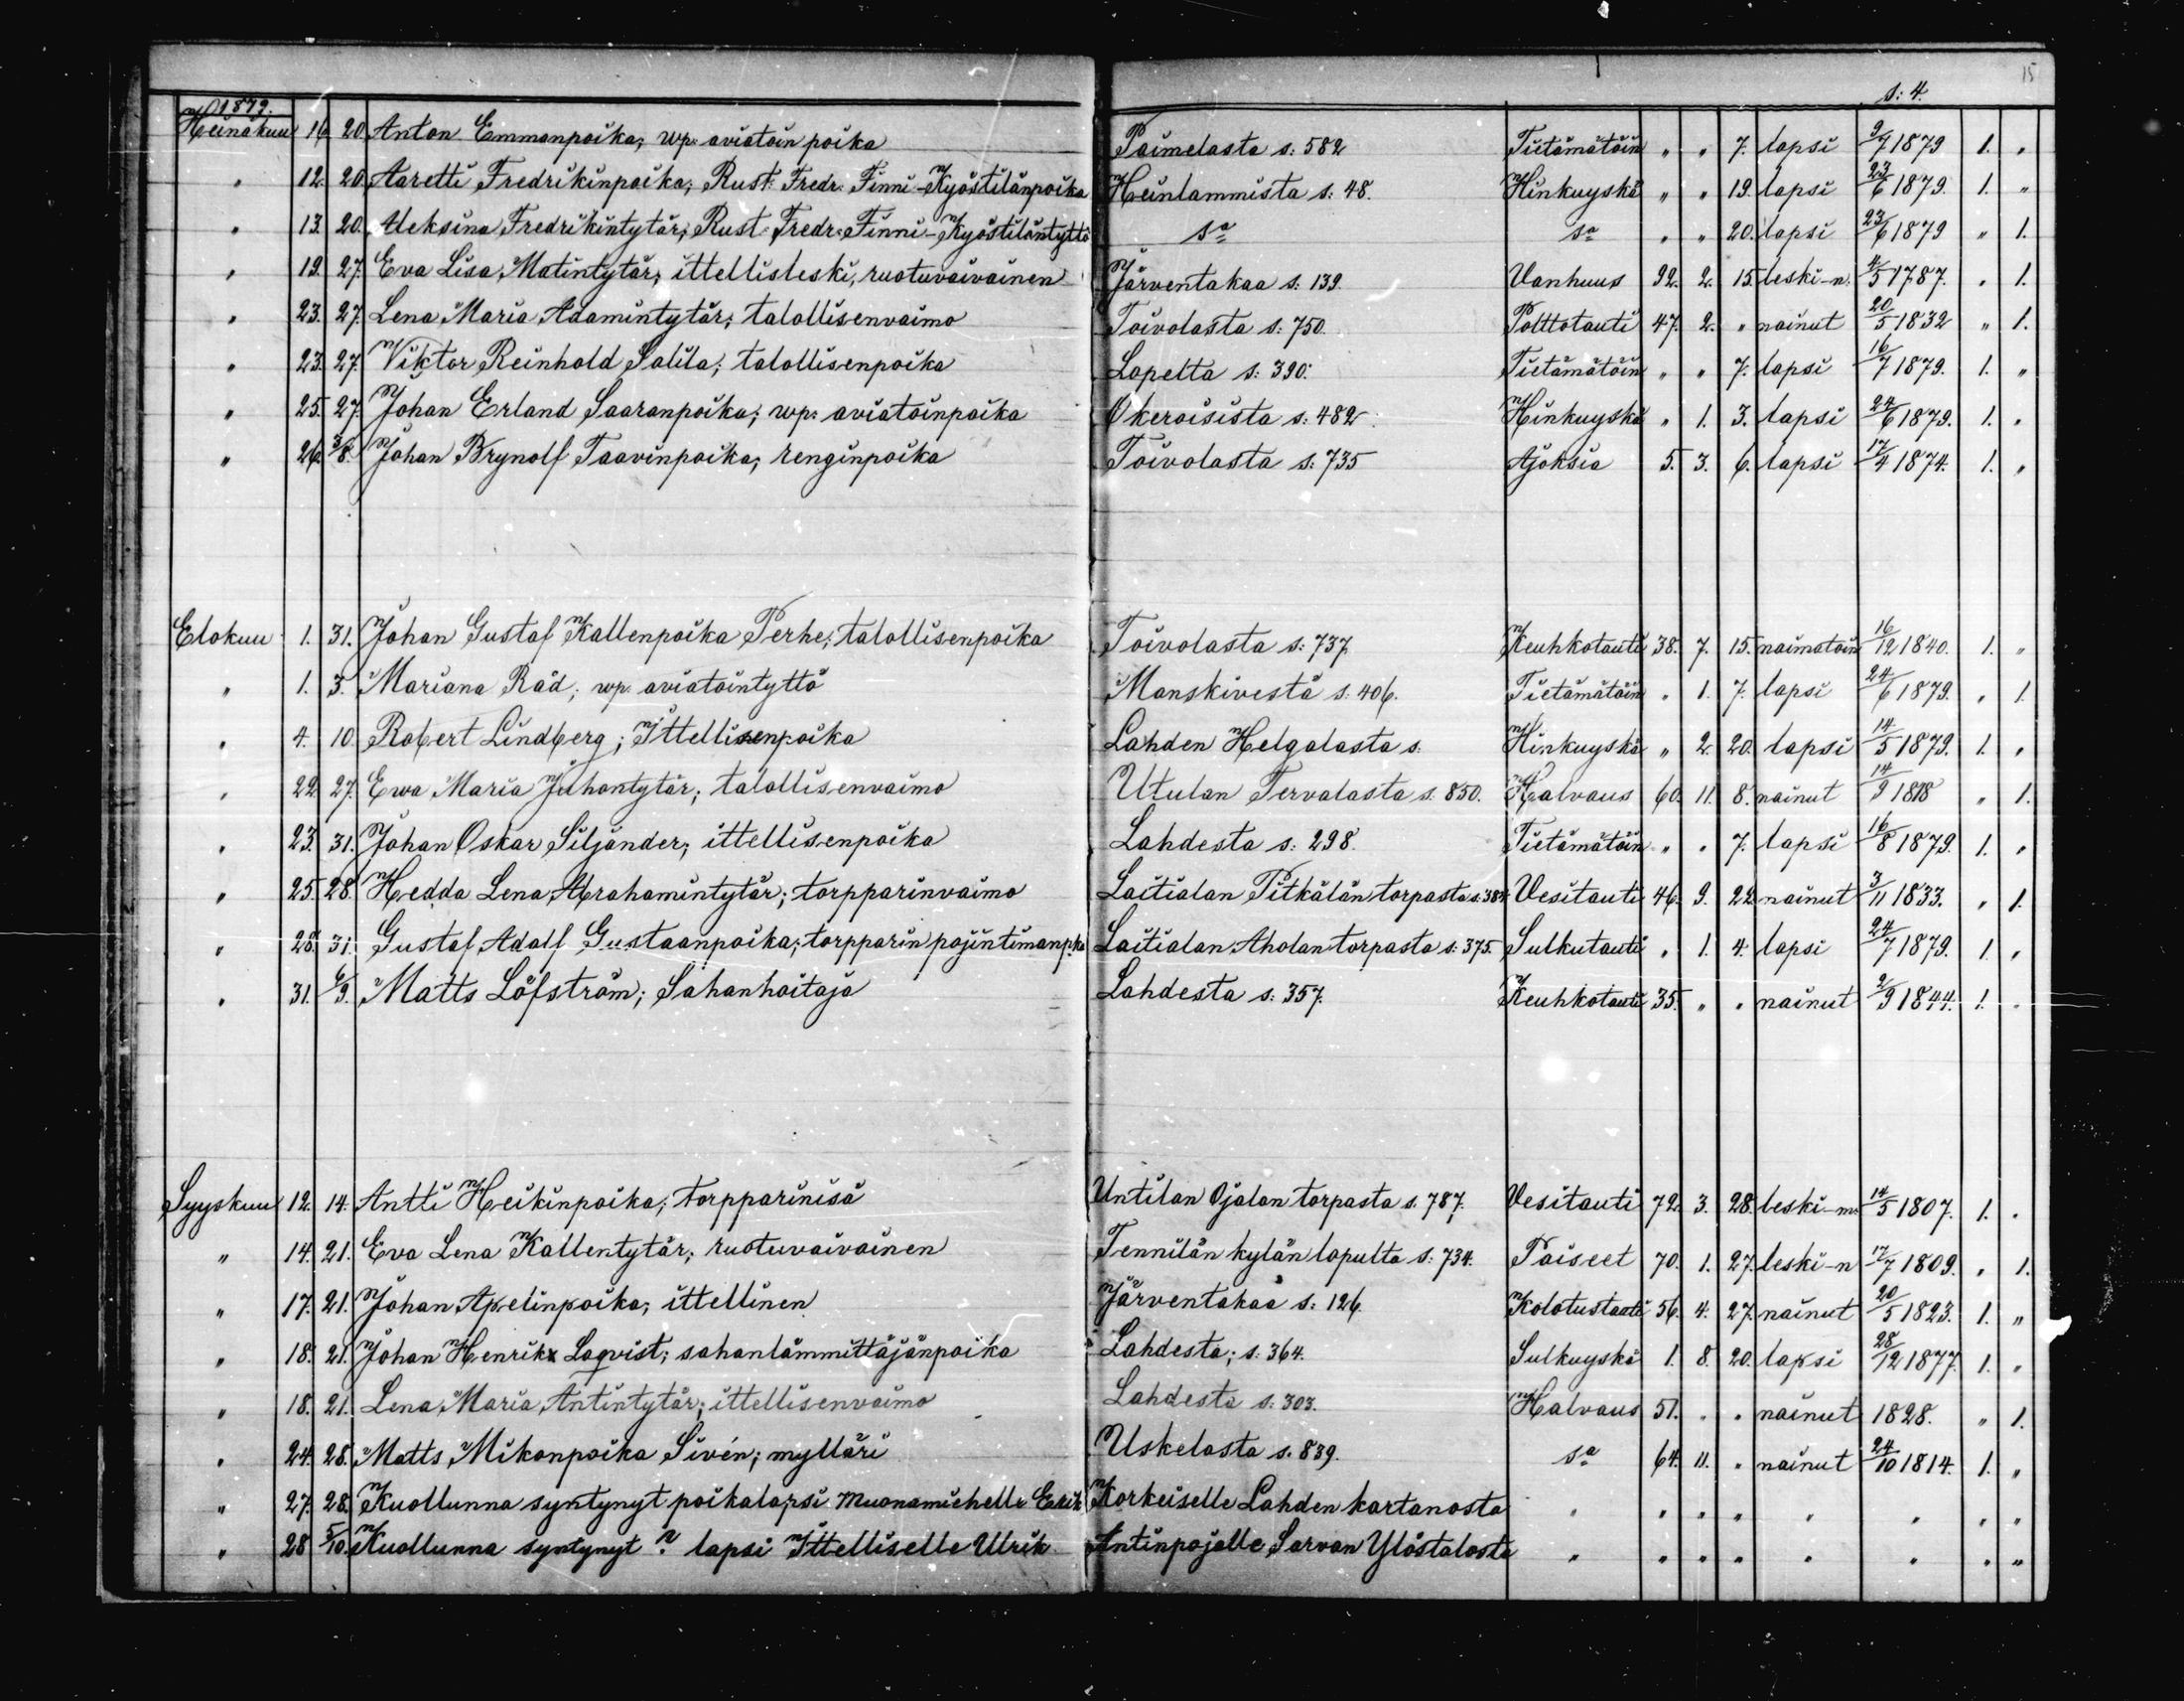 15
s: 4.
1879.
Heinäkuu 16. 20. Anton Emmanpoika; wp: aviatoin poika Paimelasta s: 582 Tietämätöin " " 7. lapsi 9/7 1879 1. "
" 12. 20. Aaretti Fredrikinpoika; Rust: Fredr: Finni-Kyöstilänpoika Heinlammista s: 48. Hinkuyskä " " 19. lapsi 23/6 1879. 1. "
" 13. 20. Aleksina Fredrikintytär; Rust: Fredr: Finni-Kyöstiläntyttö sa sa " " 20. lapsi 23/6 1879 " 1.
" 19. 27. Eva Lisa Matintytär; ittellisleski, ruotuvaivainen Järventakaa s: 139. Vanhuus 92. 2. 15. leski-n. 4/5 1787. " 1.
" 23. 27. Lena Maria Adamintytär; talollisenvaimo Toivolasta s: 750. Polttotauti 47. 2. " nainut 20/5 1832 " 1.
" 23. 27. Viktor Reinhold Salila; talollisenpoika Lopelta s: 390. Tietämätöin " " 7. lapsi 16/7 1879. 1. "
" 25. 27. Johan Erland Saaranpoika; wp: aviatoinpoika Okeroisista s: 482. Hinkuyskä " 1. 3. lapsi 24/6 1879. 1. "
" 26. 3/8. Johan Brynolf Taavinpoika; renginpoika Toivolasta s: 735 Ajoksia 5. 3. 6. lapsi 17/4 1874. 1. "
Elokuu 1. 31. Johan Gustaf Kallenpoika Perhe; talollisenpoika Toivolasta s: 737. Keuhkotauti 38. 7. 15. naimatoin 16/12 1840. 1. "
" 1. 3. Mariana Räd; wp: aviatointyttö Manskivestä s: 406. Tietämätöin " 1. 7. lapsi 24/6 1879. " 1.
" 4. 10. Robert Lindberg; Ittellisenpoika Lahden Helgalasta s. Hinkuyskä " 2. 20. lapsi 14/5 1879. 1. "
" 22. 27. Ewa Maria Juhontytär; talollisenvaimo Utulan Tervalasta s: 850. Halvaus 60. 11. 8. nainut 14/9 1818 " 1.
" 23. 31. Johan Oskar Siljander; ittellisenpoika Lahdesta s: 298. Tietämätöin " " 7. lapsi 16/8 1879. 1. "
" 25. 28. Hedda Lena Abrahamintytär; torpparinvaimo Laitialan Pitkälän torpasta s: 384. Vesitauti 46. 9. 22. nainut 3/11 1833. " 1.
" 28. 31. Gustaf Adolf Gustaanpoika; torpparin pojintimanpka Laitialan Aholan torpasta s: 375. Sulkutauti " 1. 4. lapsi 24/7 1879. 1. "
" 31. 6/9. Matts Löfström; Sahanhoitaja Lahdesta s: 357. Keuhkotauti 35. " " nainut 2/9 1844. 1. "
Syyskuu 12. 14. Antti Heikinpoika; torpparinisä Untilan Ojalan torpasta s. 787. Vesitauti 72. 3. 28. leski-m. 14/5 1807. 1. "
" 14. 21. Eva Lena Kallentytär; ruotuvaivainen Tennilän kylän lopulta s: 734. Paiseet 70. 1. 27. leski-n 17/7 1809. " 1.
" 17. 21. Johan Apelinpoika; ittellinen Järventakaa s: 126. Kolotustauti 56. 4. 27. nainut 20/5 1823. 1. "
" 18. 21. Johan Henrik Laqvist; sahanlämmittäjänpoika Lahdesta; s: 364. Sulkuyskä 1. 8. 20. lapsi 28/12 1877. 1. "
" 18. 21. Lena Maria Antintytär; ittellisenvaimo Lahdesta s: 303. Halvaus 51. " " nainut 1828. " 1.
" 24. 28. Matts Mikonpoika Sivén; mylläri Uskelasta s: 839. sa 64. 11. " nainut 24/10 1814. 1. "
" 27. 28. Kuollunna syntynyt poikalapsi Muonamiehelle Erik Korkeiselle Lahden kartanosta " " " " " " " "
" 28 5/10. Kuollunna syntynyt ? lapsi Ittelliselle Ulrik Antinpojalle Sarvan Ylöstalosta " " " " " " " "